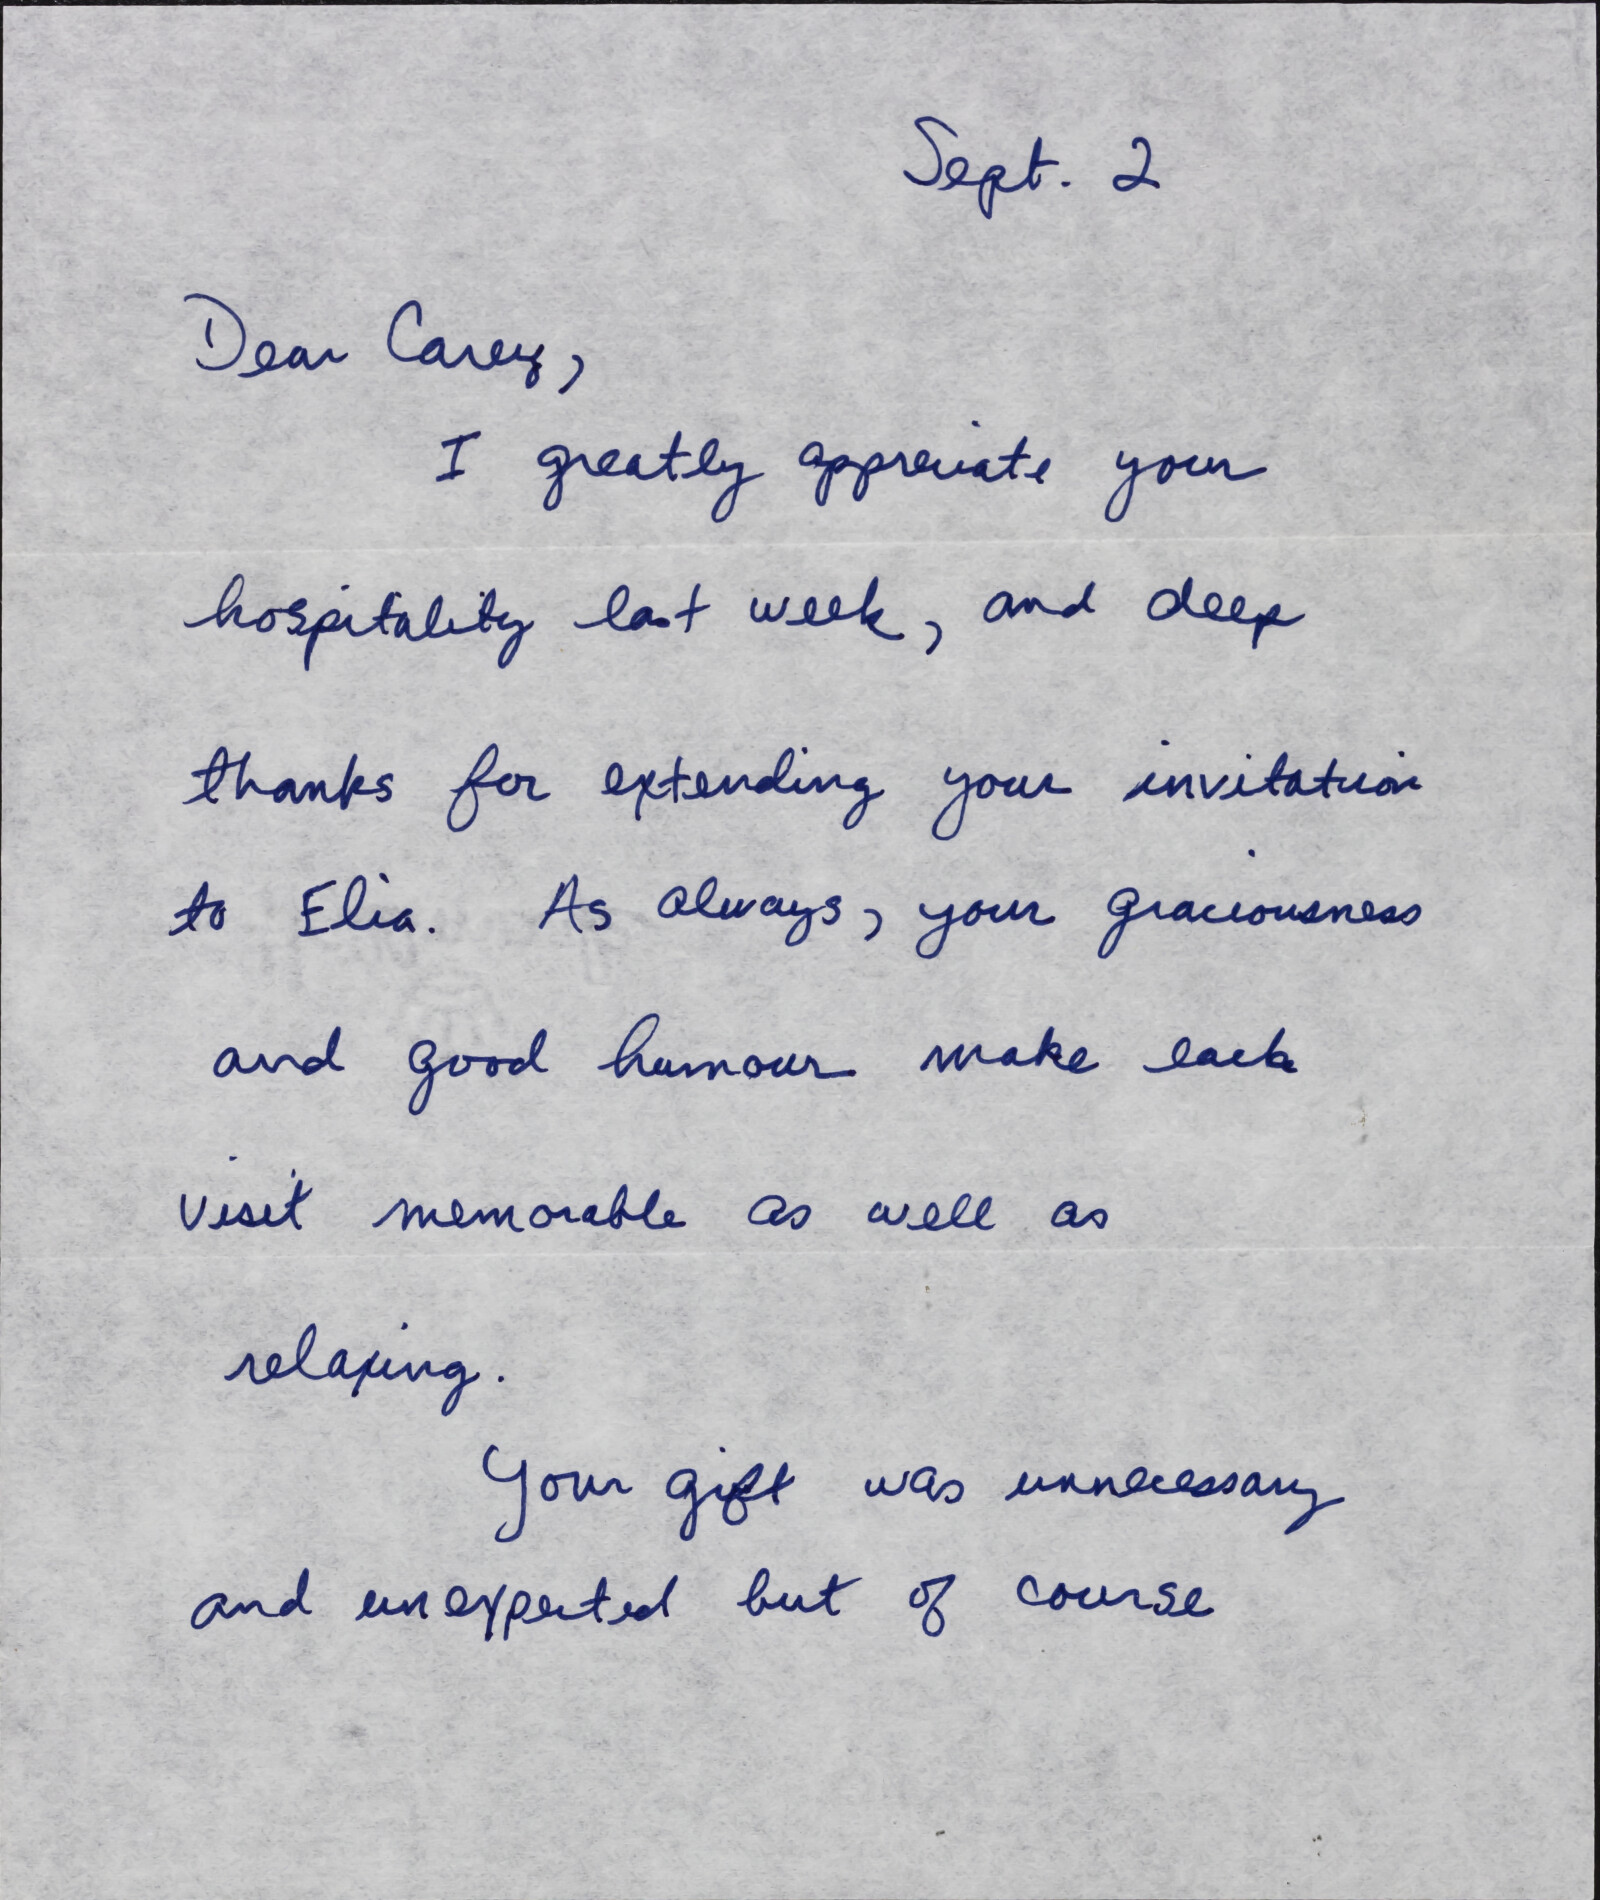 Sept. 2
Dear Carey,
I greatly appreciate your
hospitality last week, and deep
thanks for extending your invitation
to Elia. As always, your graciousness
and good humour make each
visit memorable as well as
relaxing.
Your gift was unnecessary
and unexpected but of course